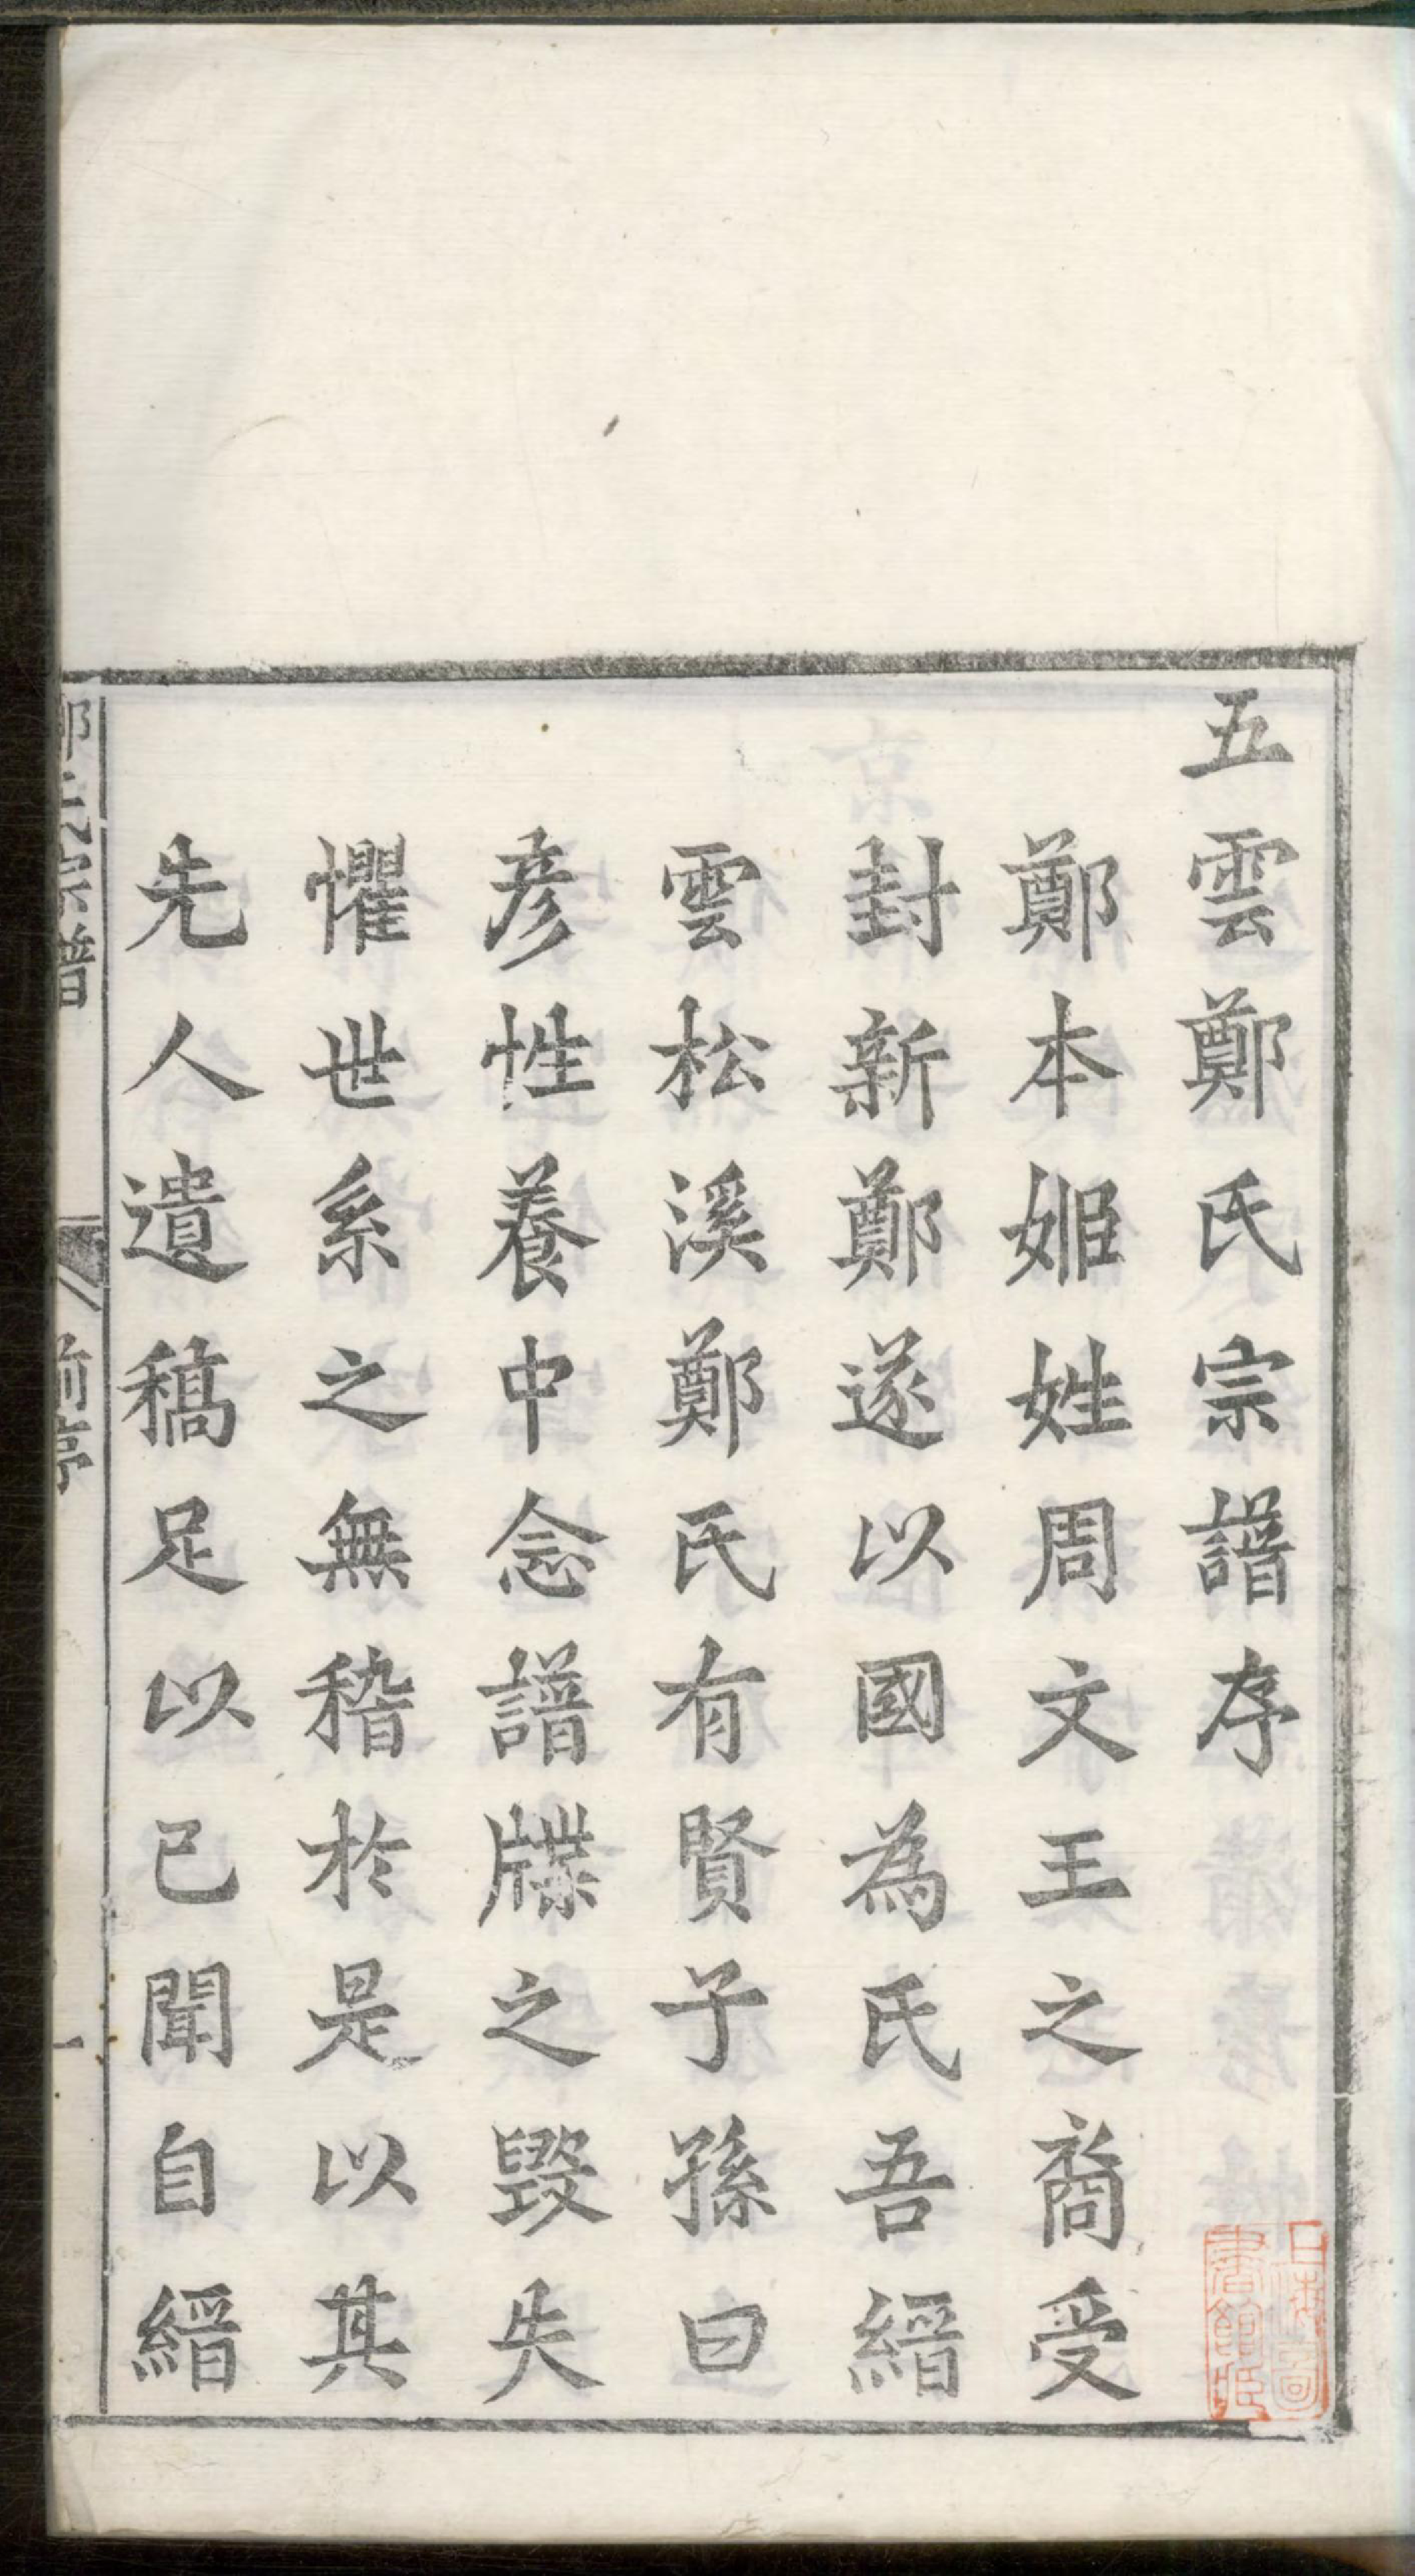 五雲鄭氏宗譜序
鄭本姬姓周文王之裔受
封新鄭遂以國為氏吾縉
雲松溪鄭氏有賢子孫曰
彥性養中念譜牒之毀失
懼世系之無稽於是以其
先人遺稿足以已聞自縉
鄭氏宗譜
前序
一
上海圖
書館藏